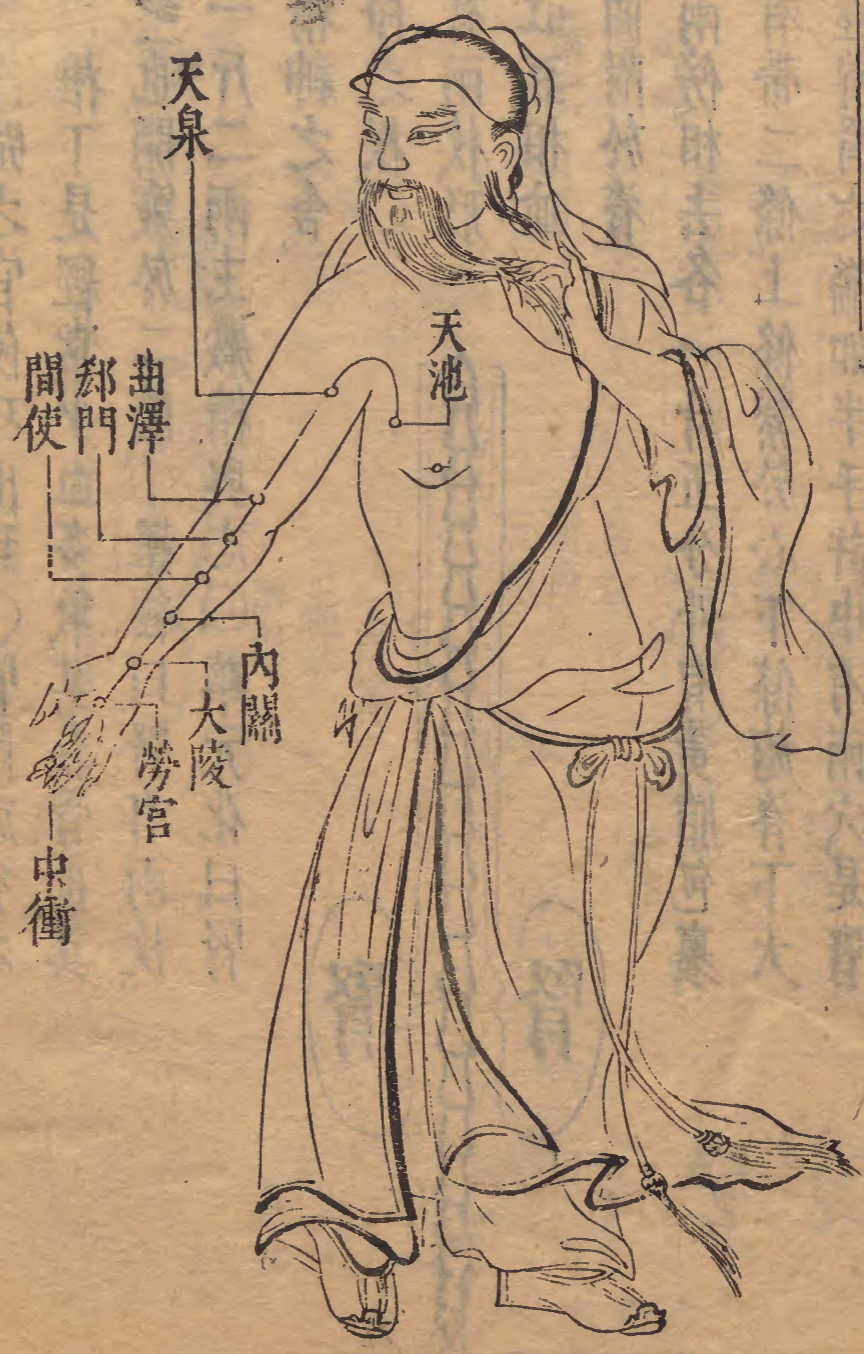 天泉
天池
曲澤
郄門
間使
內關
大陵
勞宮
中衝